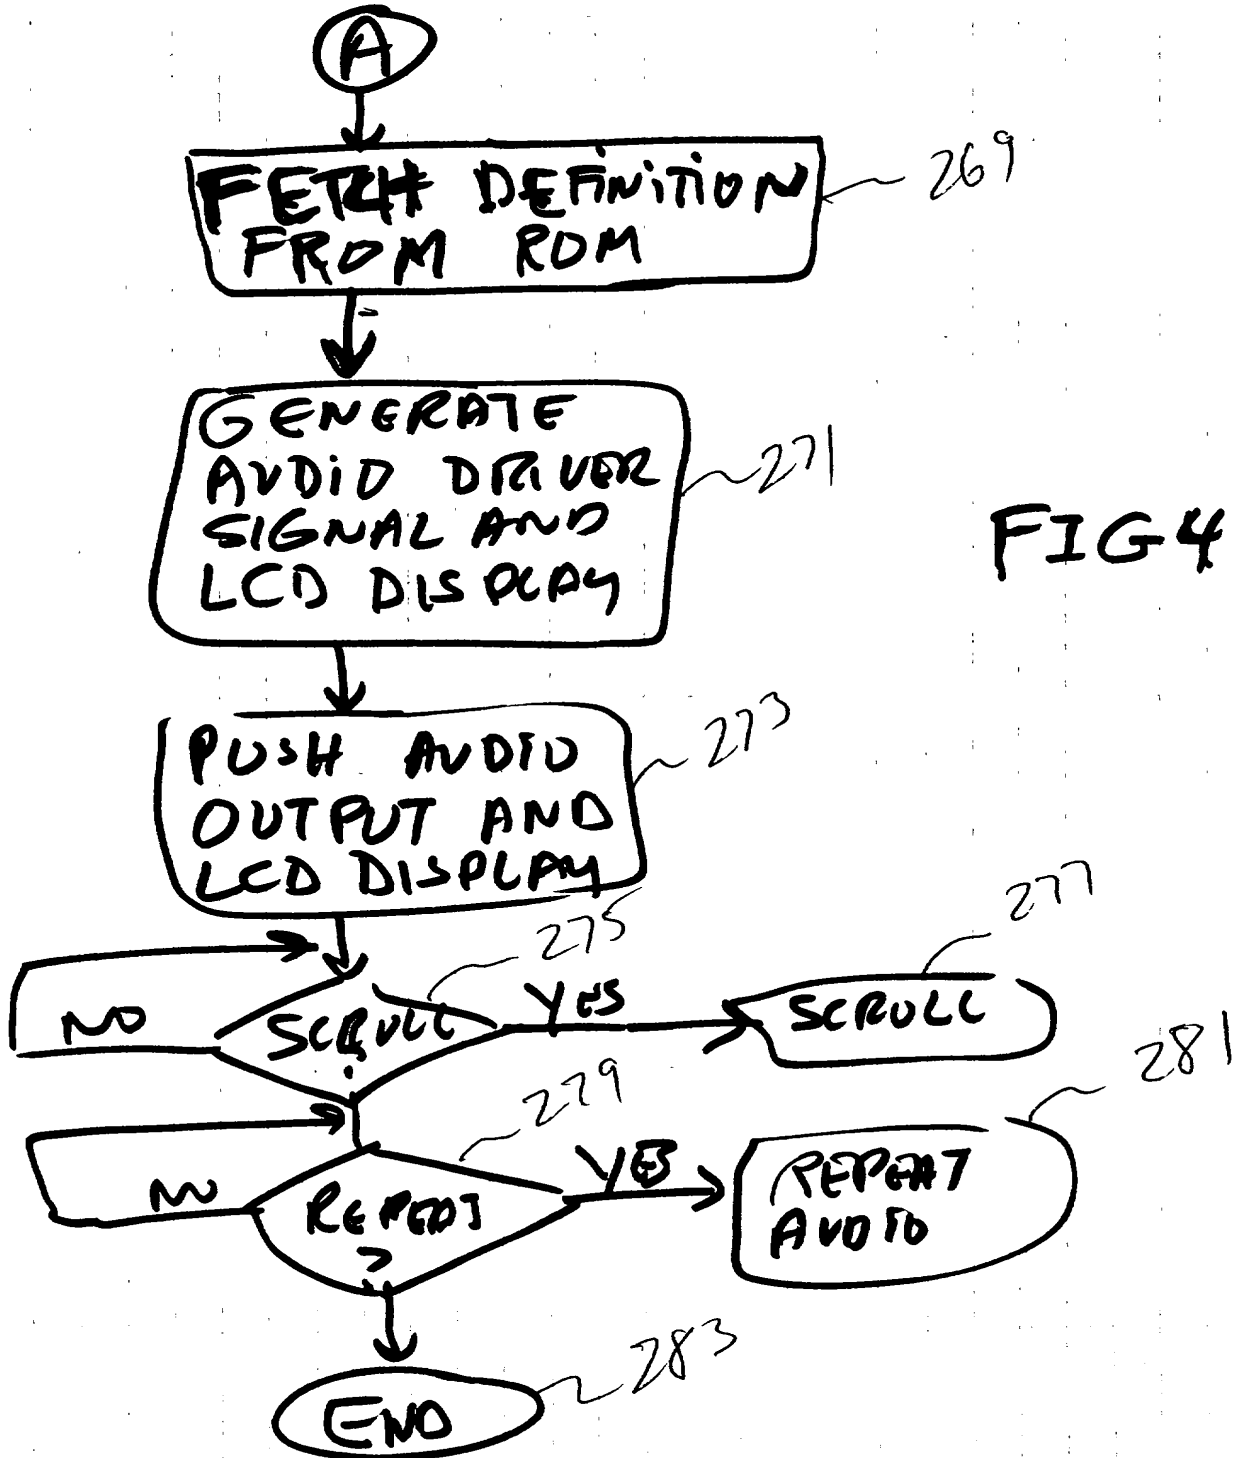 A
FETCH DEFINITION
FROM ROM
269
GENERATE
AUDIO DRIVER
SIGNAL AND
LCD DISPLAY
271
FIG 4
PUSH AUDIO
OUTPUT AND
LCD DISPLAY
273
NO
SCROLL
?
275
YES
SCROLL
277
NO
REPEAT
?
279
YES
REPEAT
AUDIO
281
END
283